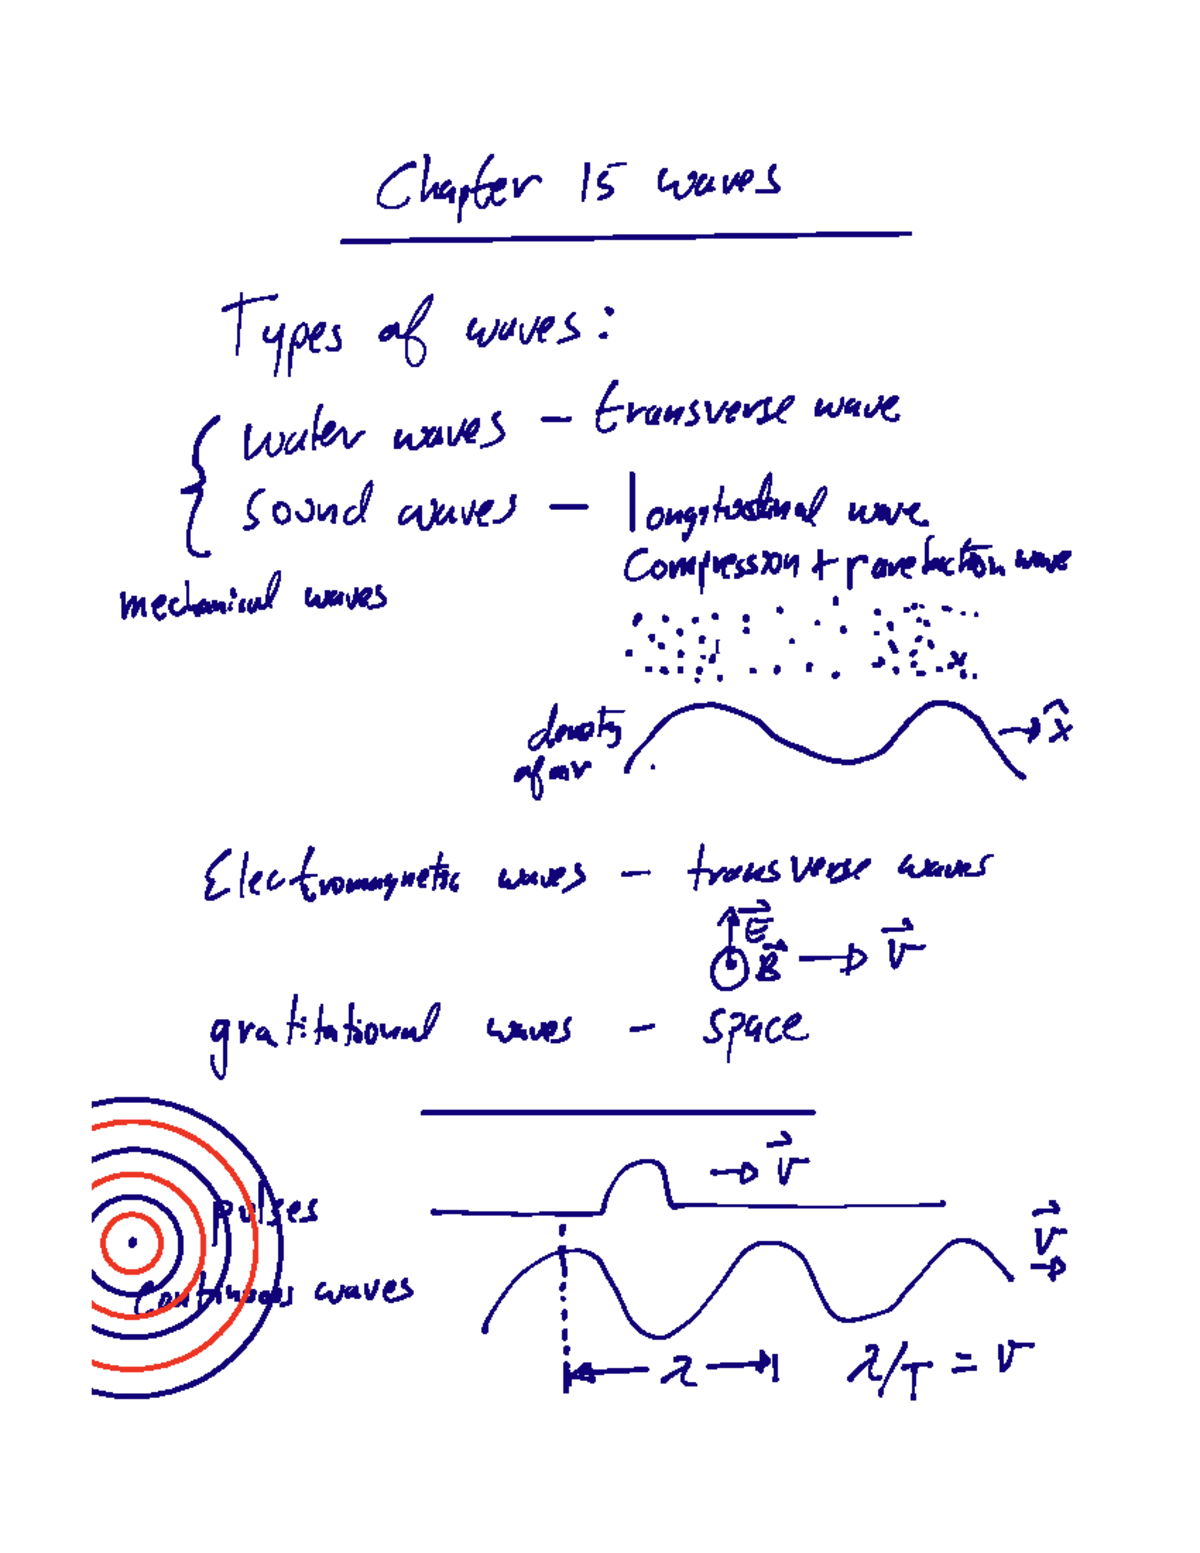 Chapter 15 waves
Types of waves:
water waves – transverse wave
Sound waves – longitudinal wave
Compression + rarefaction wave
mechanical waves
density
of air
x̂
Electromagnetic waves – transverse waves
E⃗
B⃗ v⃗
gratitational waves – space
v⃗
pulses
v⃗
Continuous waves
λ λ/T = v